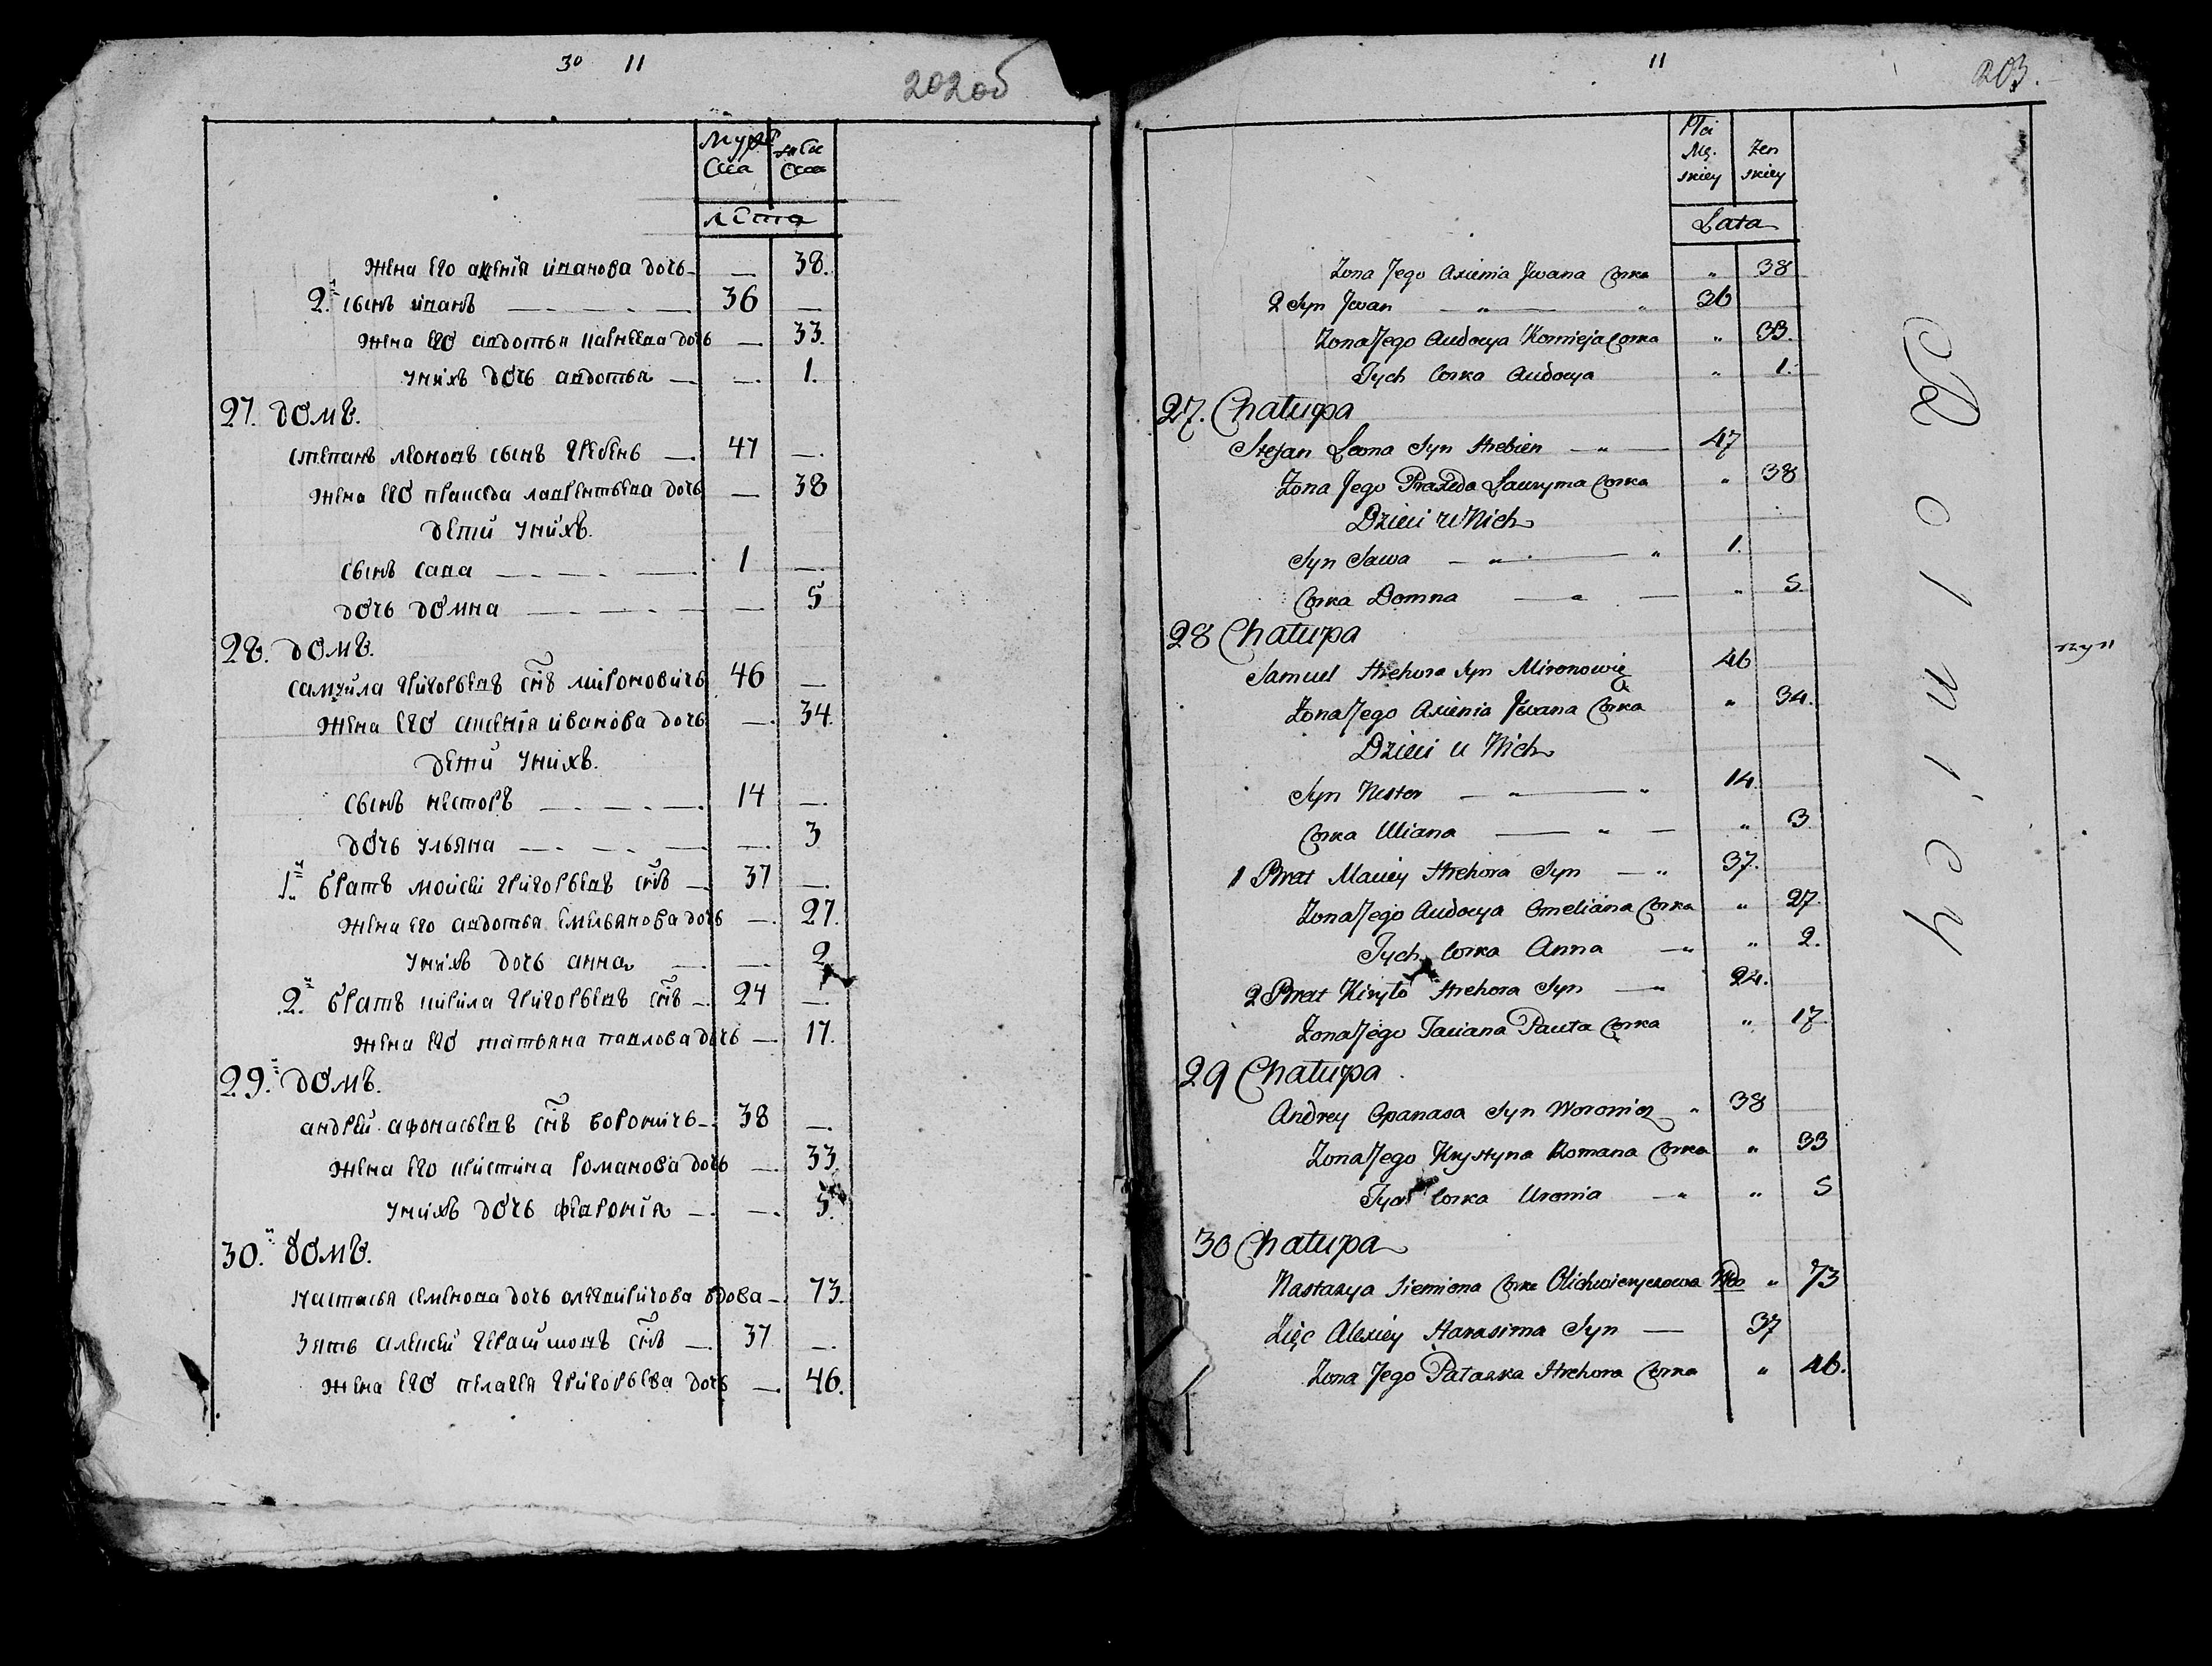 30 11
202об
Муж Ска
женска
лета
жена его аксенiя иванова дочь — 38.
2.й сынъ иванъ 36 —
жена его авдотья карнеева дочь — 33.
унихъ дочь авдотья — 1.
27. домъ.
степанъ леоновъ сынъ гребень 47 —
жена его праседа лаврентьева дочь — 38
дети унихъ.
сынъ сава 1 —
дочь домна — 5
28. домъ.
самуила григорьевъ снъ мироновичъ 46 —
жена его аксенiя иванова дочь — 34.
дети унихъ.
сынъ несторъ 14 —
дочь ульяна — 3
1.й братъ моисей григорьевъ снъ 37 —
жена его авдотья емельянова дочь — 27.
унихъ дочь анна — 2
2.й братъ кирила григорьевъ снъ 24 —
жена его татьяна павлова дочь — 17.
29.й домъ.
андрей афонасьевъ снъ вороничъ 38 —
жена его кристина романова дочь — 33.
унихъ дочь февронiя — 5.
30.й домъ.
настасья семенова дочь вдова — 73.
зять алексей герасимовъ снъ 37 —
жена его пелагея григорьева дочь — 46.
11
203.
Płci Mę. skiey
Żen skiey
Lata
Żona Jego Axienia Jwana Corka " 38
2 Syn Jwan " " 36
Żona Jego Audocya Kornieja Corka " 33.
Tych Corka Audocya " 1.
27. Chałupa
Stefan Leona Syn Hrebien " 47
Żona Jego Praxeda Lauryna Corka " 38
Dzieci u Nich
Syn Sawa " " 1.
Corka Domna " " 5.
28 Chałupa
Samuel Hrehora Syn Mironowicz 46
Żona Jego Axienia Jwana Corka " 34.
Dzieci u Nich
Syn Nester " " 14.
Corka Uliana " " 3
1 Brat Maciey Hrehora Syn " 37.
Żona Jego Audocya Omeliana Corka " 27.
Tych Corka Anna " " 2.
2 Brat Kiryło Hrehora Syn " 24.
Żona Jego Taciana Pauła Corka " 17
29 Chałupa
Andrey Opanasa Syn Woronicz " 38
Żona Jego Krystyna Romana Corka " 33
Tych Corka Uronia " " 5
30 Chałupa
Nastazya Siemiona Corka Olichwierzowa Wdo " 73
Zięc Alexiey Harasima Syn — 37
Żona Jego Pałaszka Hrehora Corka " 46.
Rolnicy